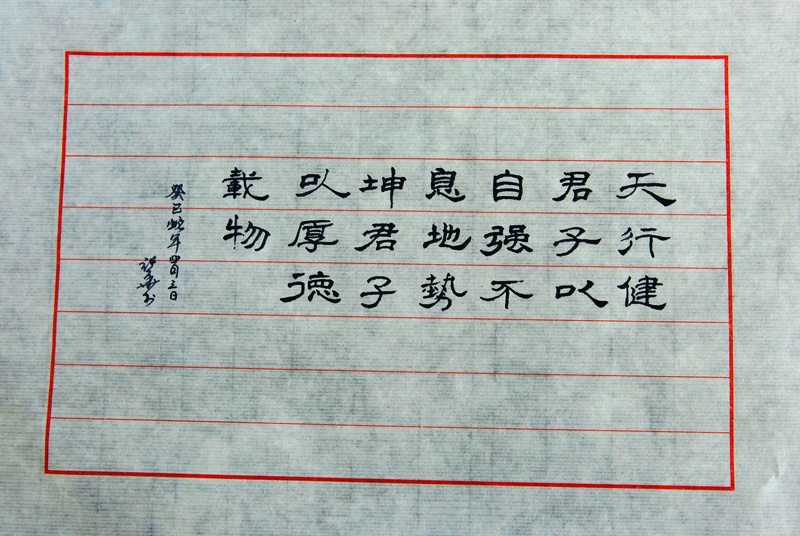 天行健
君子以
自强不
息地勢
坤君子
以厚德
載物
癸巳蛇年四月三日
书